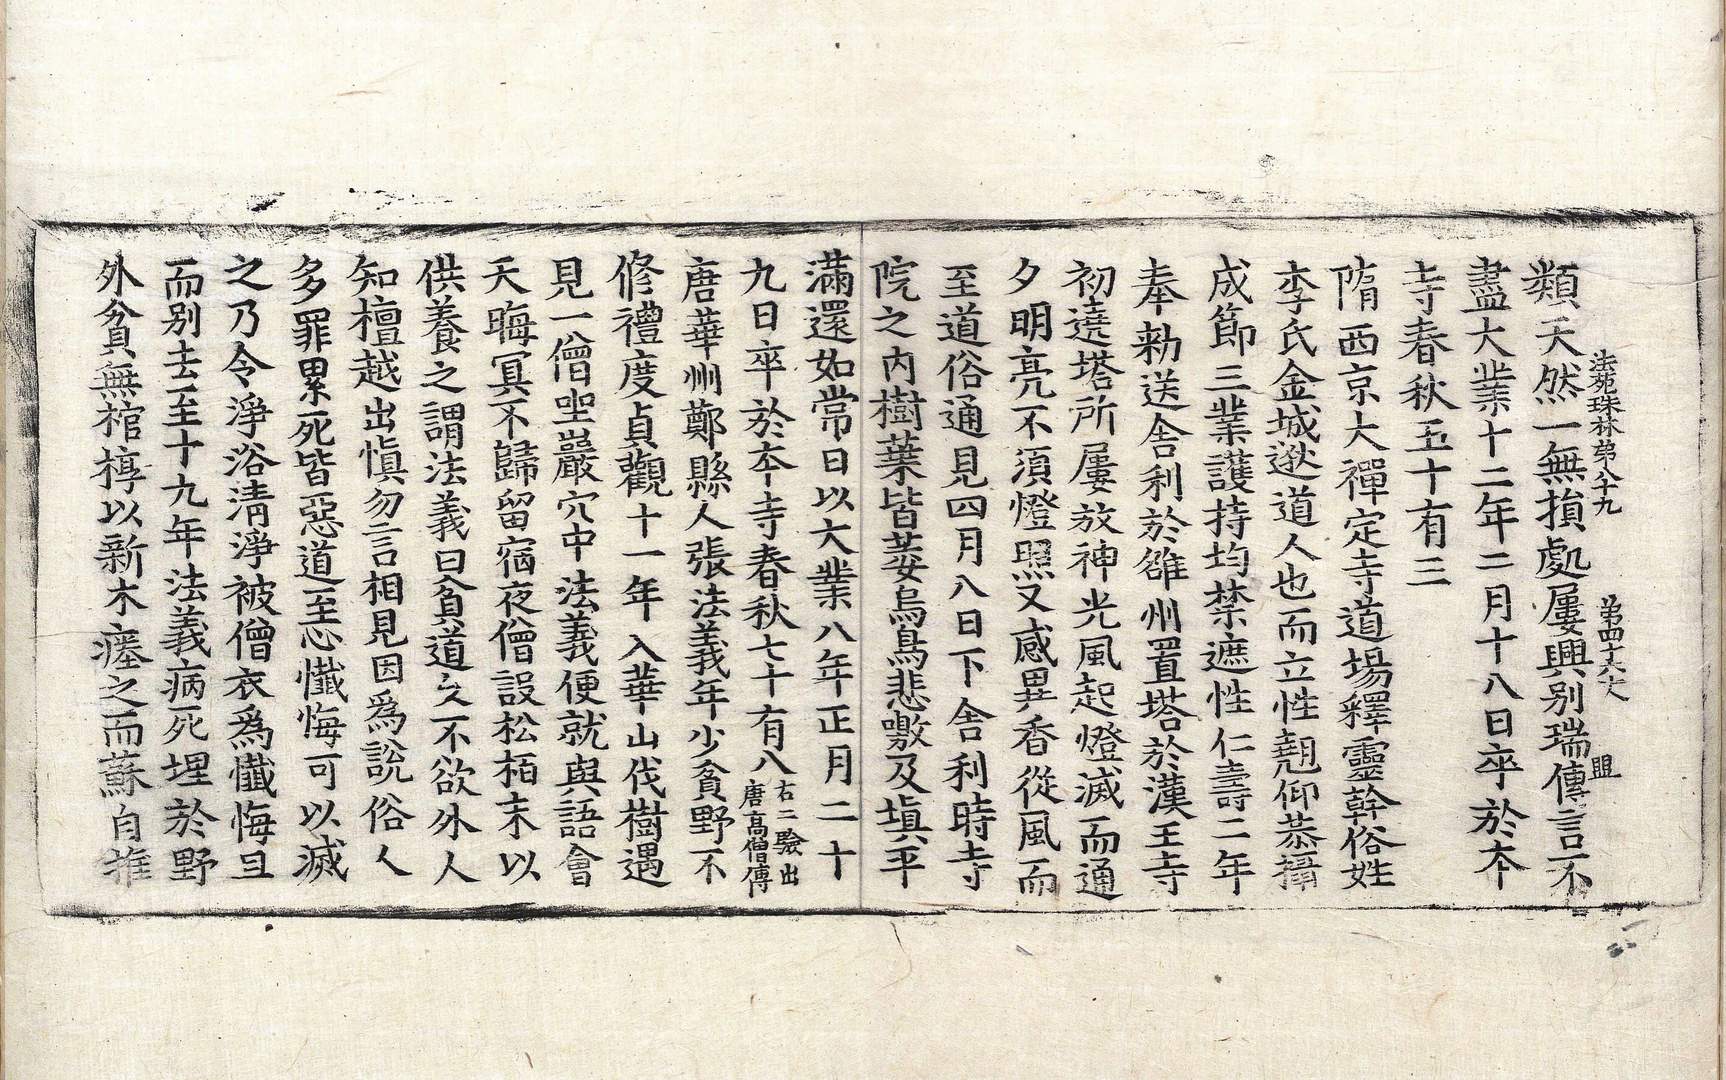 法苑珠林第八十九　第四十六丈　盟
類天然一無損處屢興別瑞傳言不
盡大業十二年二月十八日卒於本
寺春秋五十有三
隋西京大禪定寺道場釋靈幹俗姓
李氏金城逖道人也而立性翹仰恭攝
成節三業護持均禁遮性仁壽二年
奉勑送舍利於雒州置塔於漢王寺
初遶塔所屢放神光風起燈滅而通
夕明亮不須燈照又感異香從風而
至道俗通見四月八日下舍利時寺
院之內樹葉皆萎烏鳥悲噭及塡平
滿還如常日以大業八年正月二十
九日卒於本寺春秋七十有八右二驗出唐高僧傳
唐華州鄭縣人張法義年少貧野不
修禮度貞觀十一年入華山伐樹遇
見一僧坐巖穴中法義便就與語會
天晦冥不歸留宿夜僧設松栢末以
供養之謂法義曰貧道久不欲外人
知檀越出愼勿言相見因爲說俗人
多罪累死皆惡道至心懺悔可以滅
之乃令淨浴清淨被僧衣爲懺悔旦
而別去至十九年法義病死埋於野
外貧無棺槨以新木瘞之而蘇自推